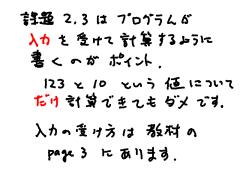 課題 2.3は プログラムが
入力 を 受けて 計算するように
書くのが ポイント.
123 と 10 という 値について
だけ 計算できてもダメです.
入力の受け方は 教材の
page 3 にあります.